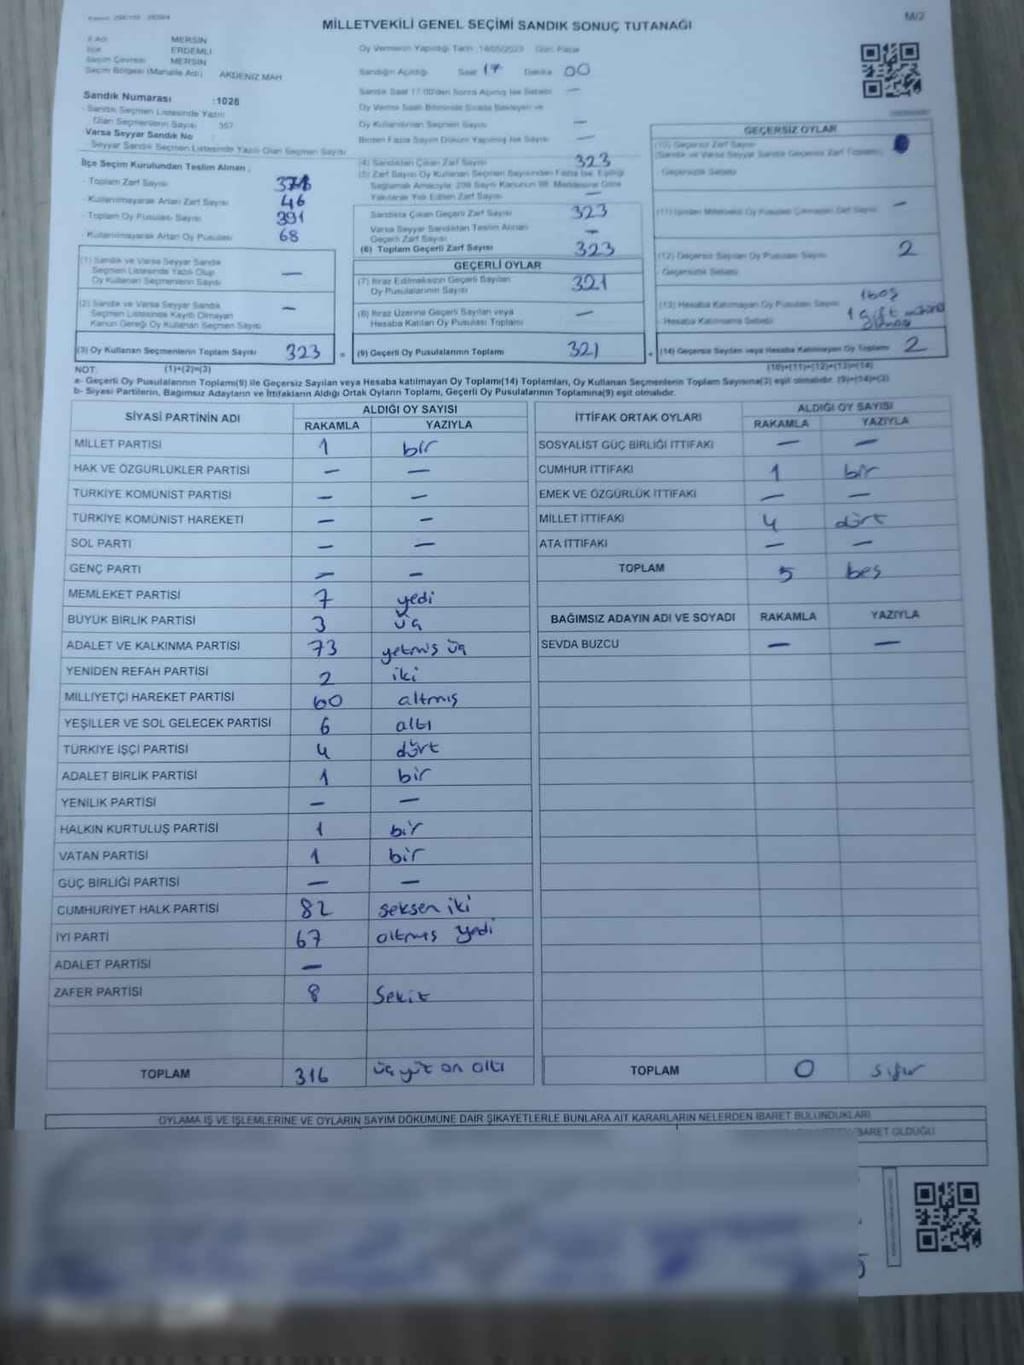 MİLLETVEKİLİ GENEL SEÇİMİ SANDIK SONUÇ TUTANAĞI
M/2
İl Adı MERSİN
İlçe ERDEMLİ
Seçim Çevresi MERSİN
Seçim Bölgesi (Mahalle Adı) AKDENİZ MAH
Sandık Numarası :1028
Sandık Seçmen Listesinde Yazılı
Olan Seçmenlerin Sayısı 357
Varsa Seyyar Sandık No
Seyyar Sandık Seçmen Listesinde Yazılı Olan Seçmen Sayısı
İlçe Seçim Kurulundan Teslim Alınan ;
- Toplam Zarf Sayısı
- Kullanılmayarak Artan Zarf Sayısı 46
- Toplam Oy Pusulası Sayısı 391
- Kullanılmayarak Artan Oy Pusulası 68
(1) Sandık ve Varsa Seyyar Sandık
Seçmen Listesinde Yazılı Olup
Oy Kullanan Seçmenlerin Sayısı —
(2) Sandık ve Varsa Seyyar Sandık
Seçmen Listesinde Kayıtlı Olmayan
Kanun Gereği Oy Kullanan Seçmen Sayısı —
(3) Oy Kullanan Seçmenlerin Toplam Sayısı 323 =
Oy Vermenin Yapıldığı Tarih : 14/05/2023 Gün: Pazar
Sandığın Açıldığı Saat 17 Dakika 00
Sandık Saat 17:00'den Sonra Açılmış İse Sebebi —
Oy Verme Saati Bitiminde Sırada Bekleyen ve
Oy Kullandırılan Seçmen Sayısı —
Birden Fazla Sayım Döküm Yapılmış İse Sayısı —
(4) Sandıktan Çıkan Zarf Sayısı 323
(5) Zarf Sayısı Oy Kullanan Seçmen Sayısından Fazla İse, Eşitliği
Sağlamak Amacıyla, 298 Sayılı Kanunun 98. Maddesine Göre
Yakılarak Yok Edilen Zarf Sayısı —
Sandıkta Çıkan Geçerli Zarf Sayısı 323
Varsa Seyyar Sandıktan Teslim Alınan
Geçerli Zarf Sayısı —
(6) Toplam Geçerli Zarf Sayısı 323
GEÇERLİ OYLAR
(7) İtiraz Edilmeksizin Geçerli Sayılan
Oy Pusulalarının Sayısı 321
(8) İtiraz Üzerine Geçerli Sayılan veya
Hesaba Katılan Oy Pusulası Toplamı —
(9) Geçerli Oy Pusulalarının Toplamı 321 +
GEÇERSİZ OYLAR
(10) Geçersiz Zarf Sayısı
(Sandık ve Varsa Seyyar Sandık Geçersiz Zarf Toplamı)
Geçersizlik Sebebi
(11) İçinden Milletvekili Oy Pusulası Çıkmayan Zarf Sayısı —
(12) Geçersiz Sayılan Oy Pusulası Sayısı 2
Geçersizlik Sebebi
(13) Hesaba Katılmayan Oy Pusulası Sayısı 1 boş
Hesaba Katılmama Sebebi 1 çift
(14) Geçersiz Sayılan veya Hesaba Katılmayan Oy Toplamı 2
NOT: (1)+(2)=(3) (10)+(11)+(12)+(13)=(14)
a- Geçerli Oy Pusulalarının Toplamı(9) ile Geçersiz Sayılan veya Hesaba katılmayan Oy Toplamı(14) Toplamları, Oy Kullanan Seçmenlerin Toplam Sayısına(3) eşit olmalıdır. (9)+(14)=(3)
b- Siyasi Partilerin, Bağımsız Adayların ve İttifakların Aldığı Ortak Oyların Toplamı, Geçerli Oy Pusulalarının Toplamına(9) eşit olmalıdır.
SİYASİ PARTİNİN ADI ALDIĞI OY SAYISI
RAKAMLA YAZIYLA
MİLLET PARTİSİ 1 bir
HAK VE ÖZGÜRLÜKLER PARTİSİ — —
TÜRKİYE KOMÜNİST PARTİSİ — —
TÜRKİYE KOMÜNİST HAREKETİ — —
SOL PARTİ — —
GENÇ PARTİ — —
MEMLEKET PARTİSİ 7 yedi
BÜYÜK BİRLİK PARTİSİ 3 üç
ADALET VE KALKINMA PARTİSİ 73 yetmiş üç
YENİDEN REFAH PARTİSİ 2 iki
MİLLİYETÇİ HAREKET PARTİSİ 60 altmış
YEŞİLLER VE SOL GELECEK PARTİSİ 6 altı
TÜRKİYE İŞÇİ PARTİSİ 4 dört
ADALET BİRLİK PARTİSİ 1 bir
YENİLİK PARTİSİ — —
HALKIN KURTULUŞ PARTİSİ 1 bir
VATAN PARTİSİ 1 bir
GÜÇ BİRLİĞİ PARTİSİ — —
CUMHURİYET HALK PARTİSİ 82 seksen iki
İYİ PARTİ 67 altmış yedi
ADALET PARTİSİ —
ZAFER PARTİSİ 8 Sekiz
TOPLAM 316 üç yüz on altı
İTTİFAK ORTAK OYLARI ALDIĞI OY SAYISI
RAKAMLA YAZIYLA
SOSYALİST GÜÇ BİRLİĞİ İTTİFAKI — —
CUMHUR İTTİFAKI 1 bir
EMEK VE ÖZGÜRLÜK İTTİFAKI — —
MİLLET İTTİFAKI 4 dört
ATA İTTİFAKI — —
TOPLAM 5 beş
BAĞIMSIZ ADAYIN ADI VE SOYADI RAKAMLA YAZIYLA
SEVDA BUZCU — —
TOPLAM 0 sıfır
OYLAMA İŞ VE İŞLEMLERİNE VE OYLARIN SAYIM DÖKÜMÜNE DAİR ŞİKAYETLERLE BUNLARA AİT KARARLARIN NELERDEN İBARET BULUNDUKLARI
BARET OLDUĞU